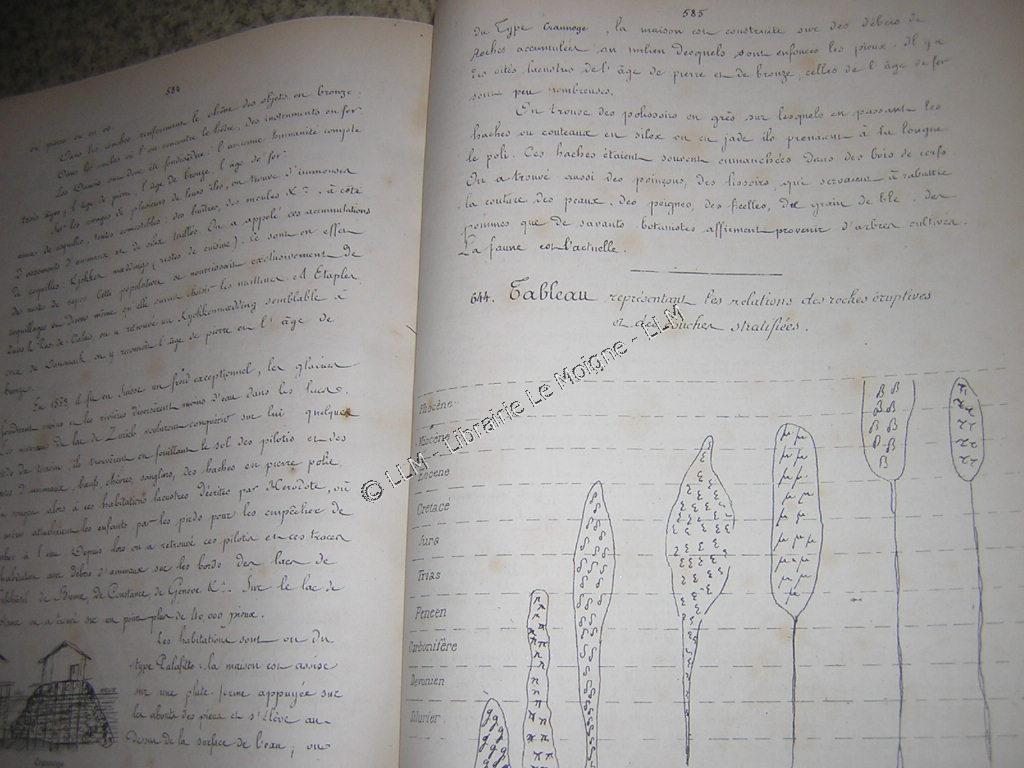 584
en pierre ou en os.
Dans les couches renfermant le chêne des objets en bronze.
Dans les couches où l'on rencontre le hêtre, des instruments en fer.
Les Danois ont donc l'ancienne humanité compte
trois âges, l'âge de pierre, l'âge de bronze, l'âge de fer.
Sur les rivages de plusieurs de leurs îles, on trouve d'immenses
amas de coquilles, toutes comestibles: des huîtres, des moules &a, à côté
d'ossements d'animaux et de silex taillés. On a appelé ces accumulations
de coquilles: Kjökken möddings (restes de cuisine); ce sont en effet
des restes de repas. Cette population se nourrissait exclusivement de
coquillages
dans le Pas-de-Calais, on a retrouvé un Kjökkenmödding semblable à
ceux de Danemark on y reconnaît l'âge de pierre et l'âge de
bronze.
En 1853, il fit en Suisse un froid exceptionnel, les glaciers
fondirent moins et les rivières déversèrent moins d'eau dans les lacs.
Les riverains du lac de Zurich voulurent conquérir sur lui quelques
du terrain; ils trouvèrent en fouillant le sol des pilotis et des
d'animaux, bœufs, chèvres, sangliers, des haches en pierre polie.
songea alors à ces habitations lacustres décrites par Hérodote, où
mères attachaient les enfants par les pieds pour les empêcher de
à l'eau. Depuis lors on a retrouvé ces pilotis et ces traces
d'habitation avec débris d'animaux sur les bords des lacs de
de Bienne, de Constance, de Genève &a. Sur le lac de
on a trouvé sur un point plus de 40,000 pieux.
Les habitations sont ou du
type Palafitte: la maison est assise
sur une plate-forme appuyée sur
les abouts des pieux et s'élève au-
dessus de la surface de l'eau; ou
Crannoge
585
du Type Crannoge, la maison est construite sur des débris de
roches accumulées au milieu desquels sont enfoncés les pieux. Il y a
des cités lacustres de l'âge de pierre et de bronze, celles de l'âge de fer
sont peu nombreuses.
On trouve des polissoirs en grès sur lesquels en passant les
haches ou couteaux en silex ou en jade ils prenaient à la longue
le poli. Ces haches étaient souvent emmanchées dans des bois de cerfs.
On a trouvé aussi des poinçons, des lissoirs, qui servaient à rabattre
la couture des peaux, des peignes, des ficelles, du grain de blé, des
pommes que de savants botanistes affirment provenir d'arbres cultivés.
La faune est l'actuelle.
644. Tableau représentant les relations des roches éruptives
et des couches stratifiées.
Pliocène
Miocène
Eocène
Crétacé
Jura
Trias
Penéen
Carbonifère
Devonien
Silurien
© LLM - Librairie Le Moigne - LLM